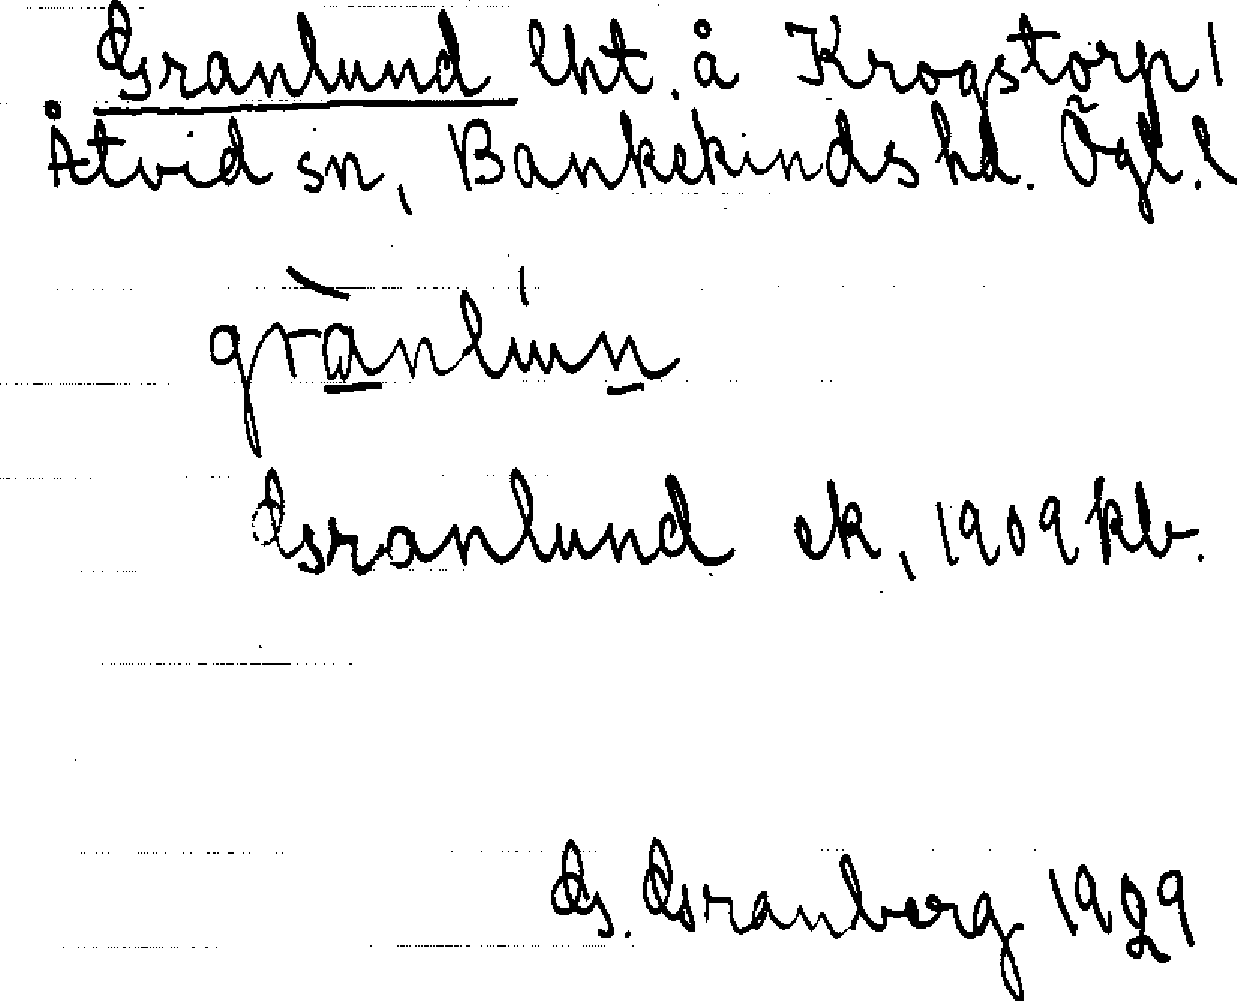 Granlund lht. å Krogstorp 1
Åtvid sn, Bankekinds hd. Ögl. l
grànlún
Granlund ek, 1909 kb.
G. Granberg 1929